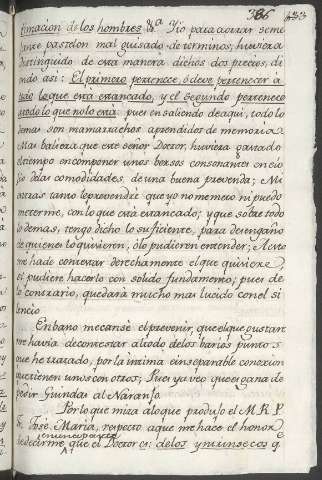 386 433
timacion de los hombres &a. Yo para cortar seme
jante pastelon mal guisado de terminos, huviera
distinguido de esta manera dichos dos precios, di
ciendo asi: El primero pertenece, ó deve pertenecer á
todo lo que está estancado, y el segundo pertenece
á todo lo que no lo está pues en saliendo de aqui, todo lo
demas son mamarrachos aprendidos de memoria
Mas baliera que este señor Doctor, huviera gastado
el tiempo en componer unos versos consonantes en elo
gio de las comodidades de una buena prevenda; Mi
entras tanto le prevendré que yo no me meto ni puedo
meterme, con lo que está estancado; y que sobre todo
lo demas, tengo dicho lo suficiente, para desengaño
de quienes lo quisieren, ó lo pudieren entender; A esto
me hade contextar derechamente el que quisiere,
si pudiere hacerlo con solido fundamento; pues de
lo contrario, quedará mucho mas lucido con el si
lencio
En bano me cansé el prevenir, que el que gustare
me havia de contestar á todo de los barios puntos
que he tratado, por la intima é inseparable conexion
que tienen unos con otros; Pues ya veo que es gana de
pedir Guindas al Naranjo.
Por lo que mira a lo que produjo el M. R. P.
F. Jose Maria, respecto a que me hace el honor
de decirme, que el Doctor es: de los